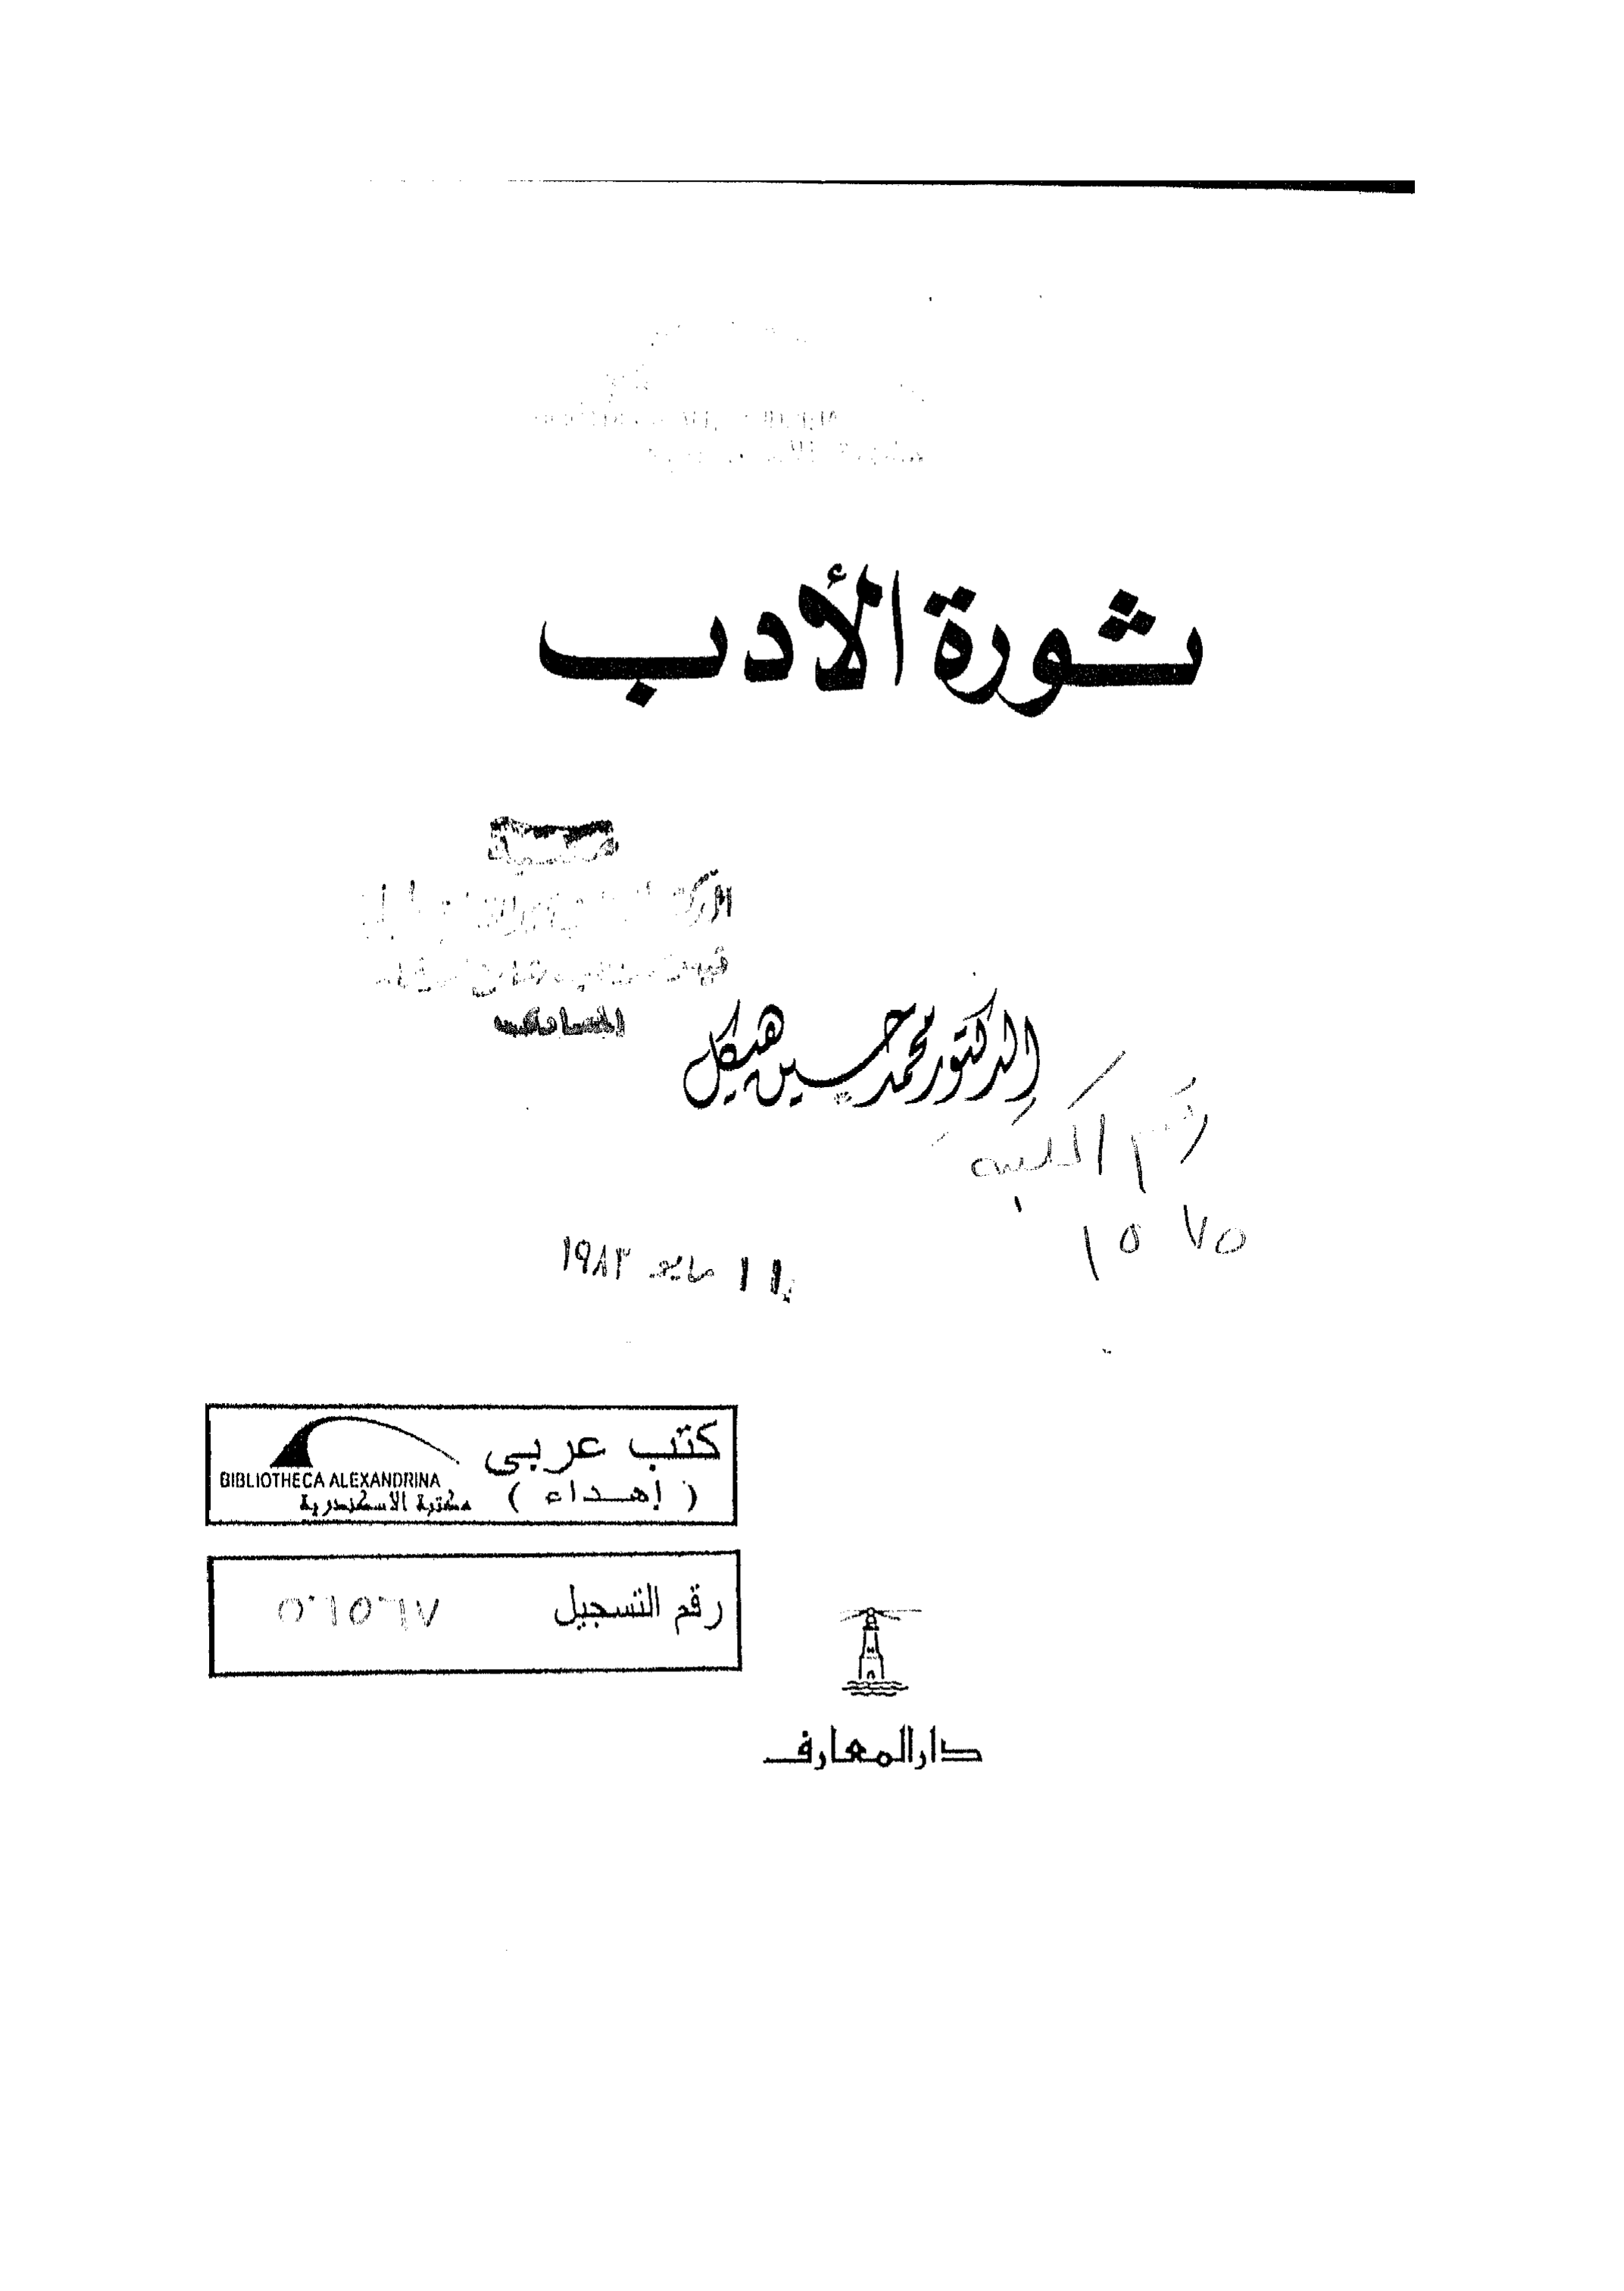 ثورة الأدب
الدكتور محمد حسين هيكل
رقم المكتبة
١٥٧٥
١١ مايو ١٩٨٣
كتب عربى
( إهداء )
BIBLIOTHECA ALEXANDRINA
مكتبة الاسكندرية
رقم التسجيل
دار المعارف